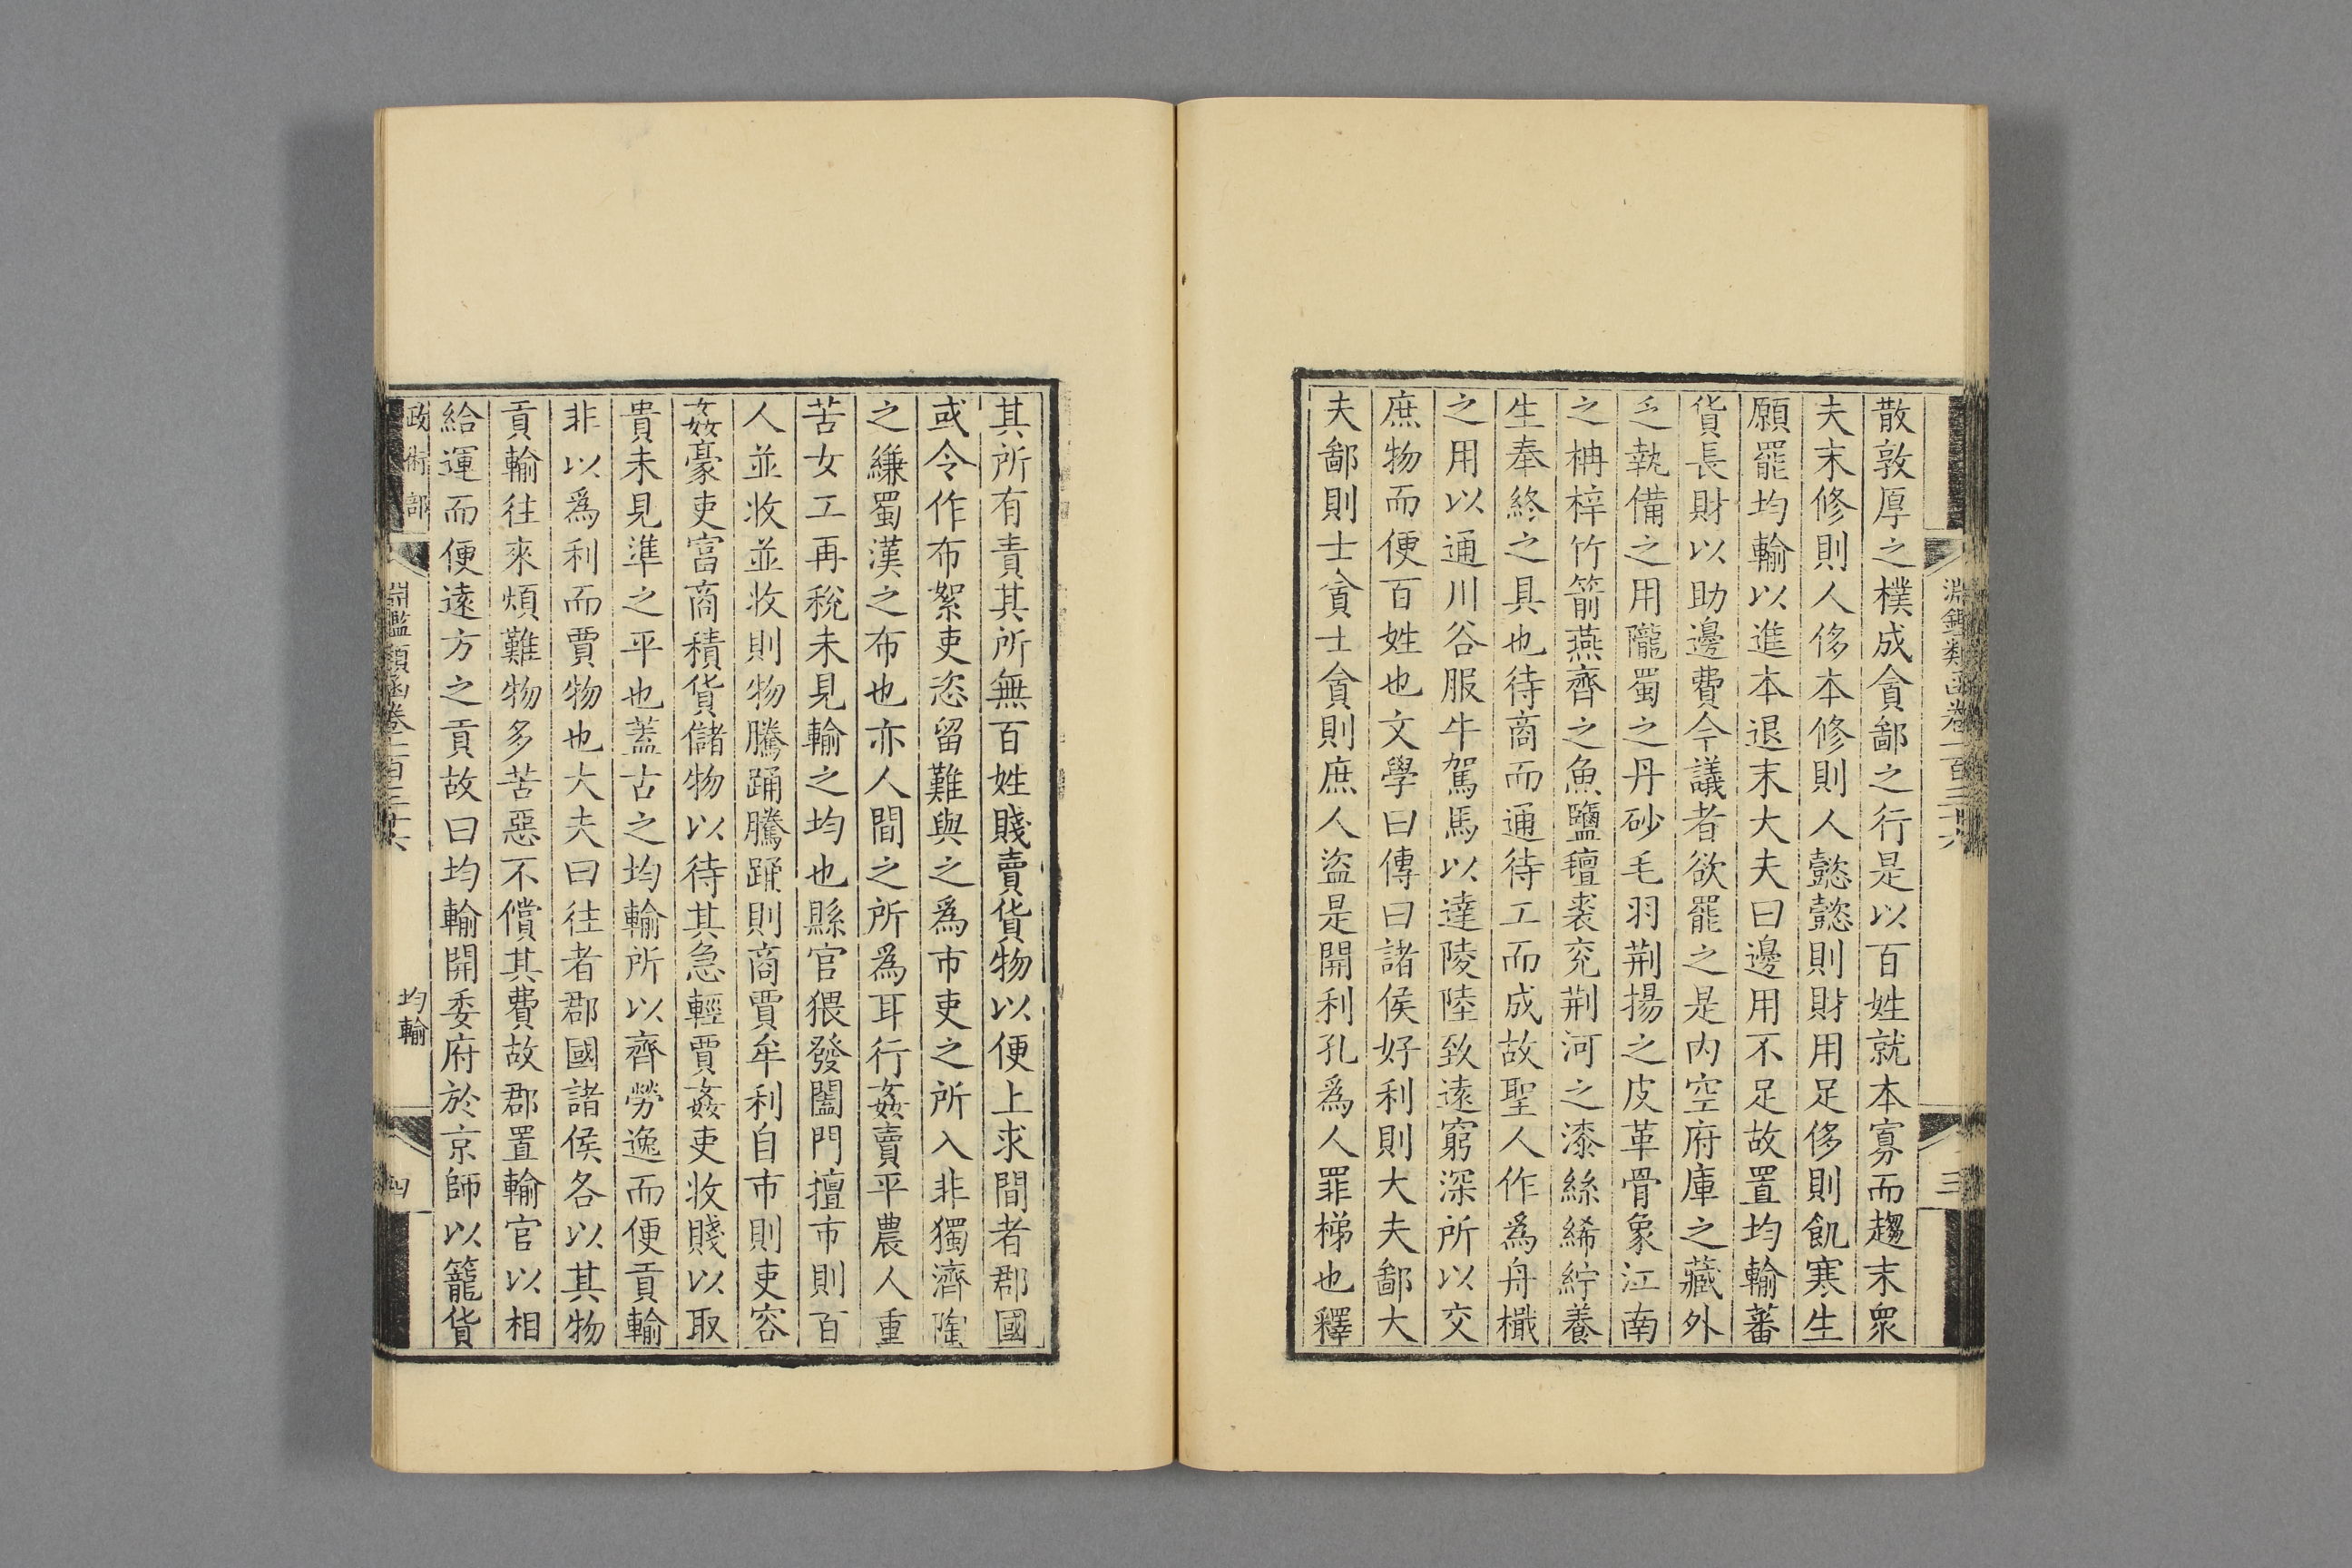 淵鑑類函卷一百三十六
三
散敦厚之樸成貪鄙之行是以百姓就本寡而趨末衆
夫末修則人侈本修則人懿懿則財用足侈則飢寒生
願罷均輸以進本退末大夫曰邊用不足故置均輸蕃
貨長財以助邊費今議者欲罷之是內空府庫之藏外
乏執備之用隴蜀之丹砂毛羽荆揚之皮革骨象江南
之柟梓竹箭燕齊之魚鹽氊裘兖荆河之漆絲絺紵養
生奉終之具也待商而通待工而成故聖人作爲舟檝
之用以通川谷服牛駕馬以達陵陸致遠窮深所以交
庶物而便百姓也文學曰傳曰諸侯好利則大夫鄙大
夫鄙則士貪士貪則庶人盜是開利孔爲人罪梯也釋
其所有責其所無百姓賤賣貨物以便上求間者郡國
或令作布絮吏恣留難與之爲市吏之所入非獨濟陶
之縑蜀漢之布也亦人間之所爲耳行姦賣平農人重
苦女工再稅未見輸之均也縣官猥發闔門擅市則百
人並收並收則物騰踊騰踊則商賈牟利自市則吏容
姦豪吏富商積貨儲物以待其急輕賈姦吏收賤以取
貴未見準之平也蓋古之均輸所以齊勞逸而便貢輸
非以爲利而賈物也大夫曰往者郡國諸侯各以其物
貢輸往來煩難物多苦惡不償其費故郡置輸官以相
給運而便遠方之貢故曰均輸開委府於京師以籠貨
政術部
淵鑑類函卷一百三十六
均輸
四